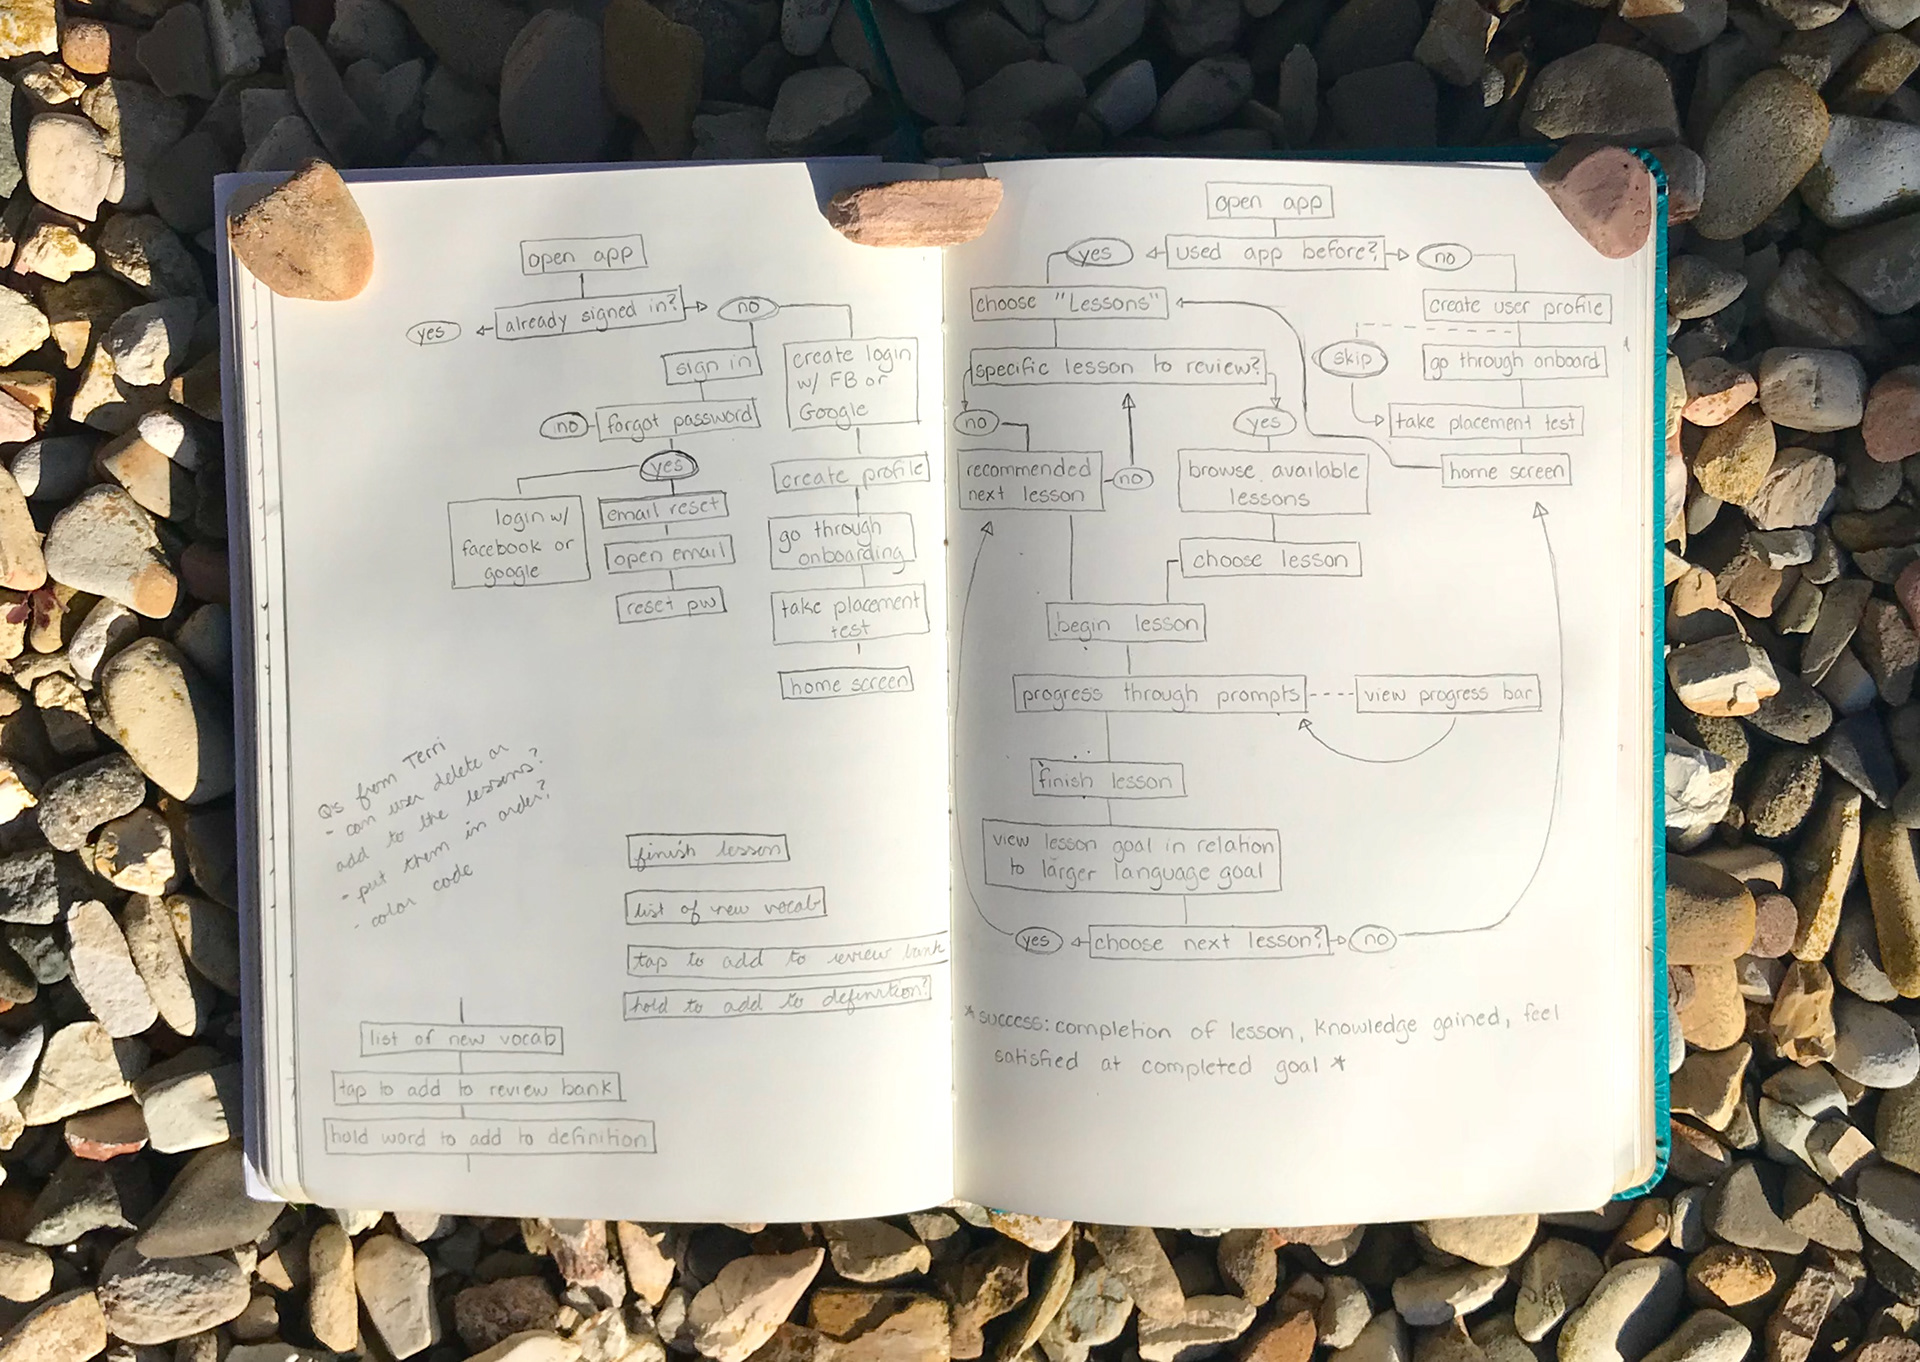 open app
already signed in?
yes
no
sign in
create login
w/ FB or
Google
no
forgot password
yes
create profile
login w/
facebook or
google
email reset
open email
reset pw
go through
onboarding
take placement
test
home screen
Qs from Terri
- can user delete or
add to the lessons?
- put them in order?
- color code
finish lesson
list of new vocab
tap to add to review bank
hold to add to definition?
list of new vocab
tap to add to review bank
hold word to add to definition
open app
yes
used app before?
no
choose "Lessons"
create user profile
specific lesson to review?
skip
go through onboard
no
yes
take placement test
recommended
next lesson
no
browse available
lessons
home screen
choose lesson
begin lesson
progress through prompts
view progress bar
finish lesson
view lesson goal in relation
to larger language goal
yes
choose next lesson?
no
*success: completion of lesson, knowledge gained, feel
satisfied at completed goal *